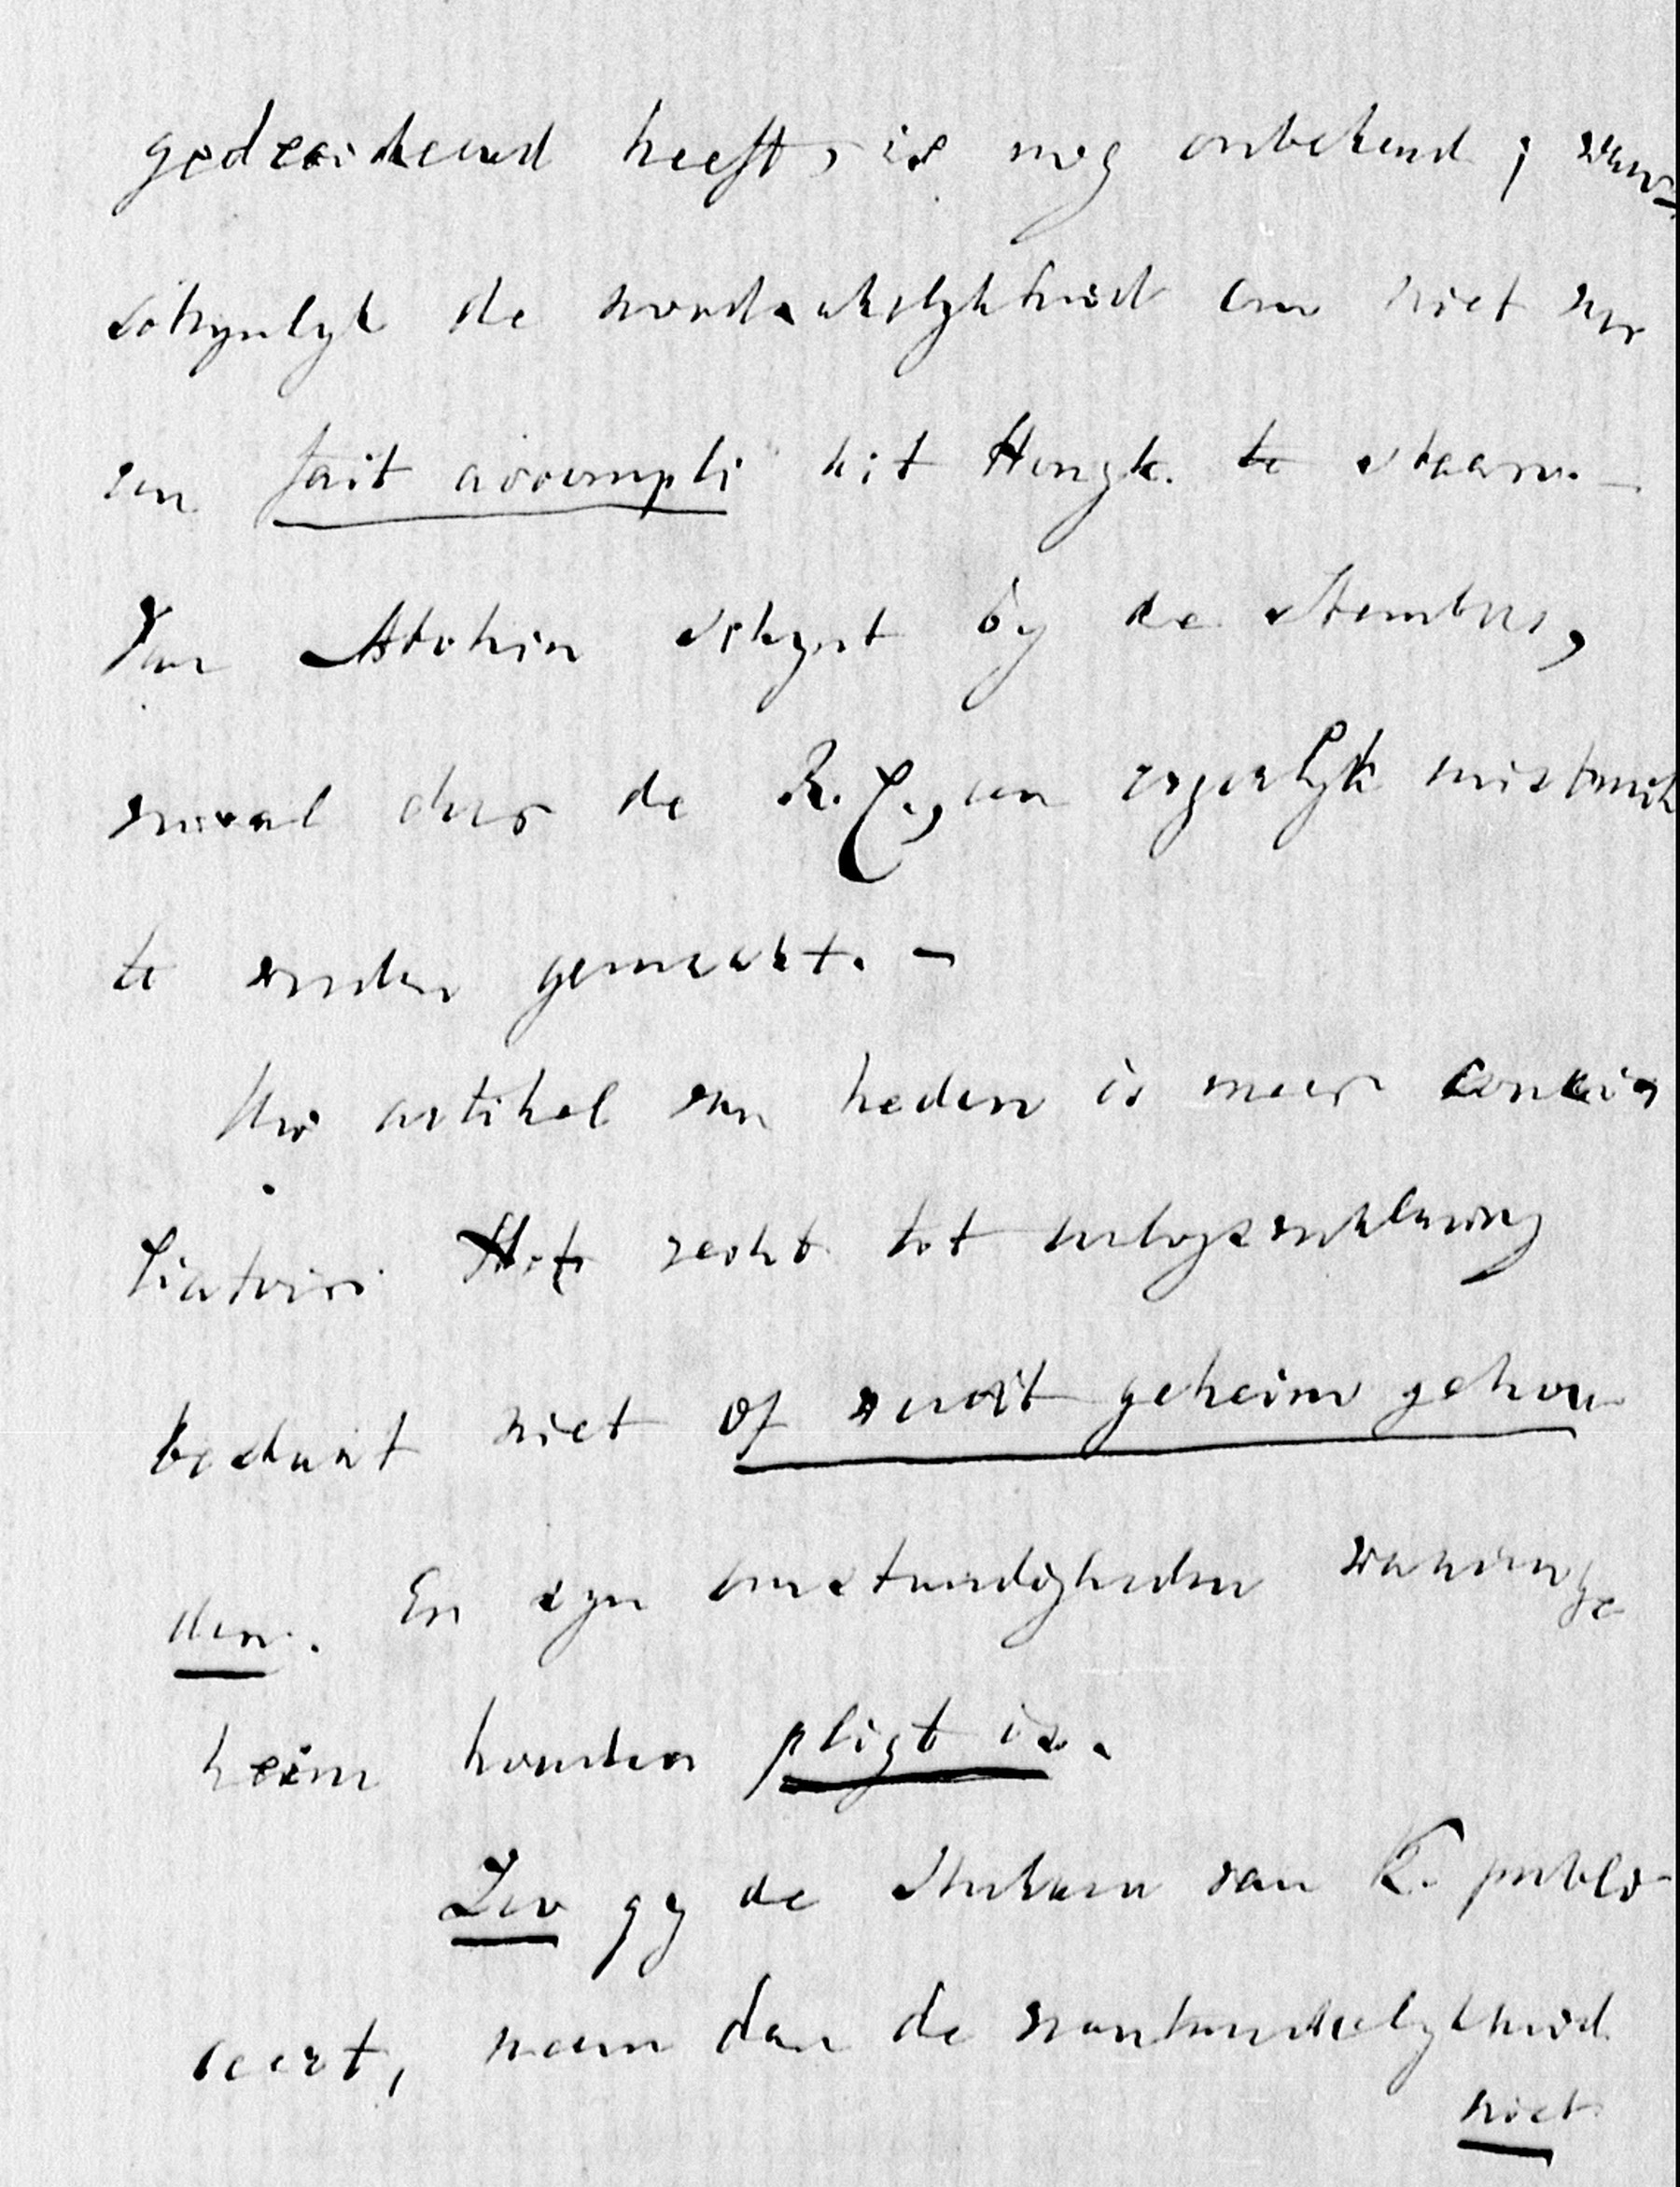 gedecideerd heeft, is nog onbekend; waar-
schynlyk de noodzakelykheid om niet voor
een fait accompli uit Hongk. te staan. –
Van Atchin schynt by de stembus,
vooral door de R.C., een ergerlyk misbruik
te worden gemaakt. –
Uw artikel van heden is meer concis
Het recht tot oorlogsverklaring
bedunkt niet of nooit geheim gehou-
den. Er zyn omstandigheden waarin ge-
heim houden pligt is.
Zoo gy de stukken van K. publi-
ceert, neem dan de verantwoordelykheid
niet